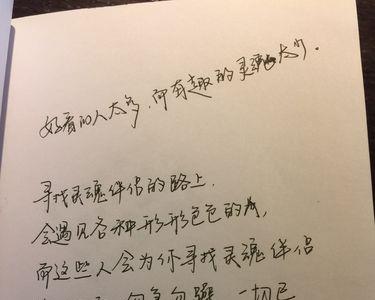 好看的人太多，而有趣的灵魂太少．
寻找灵魂伴侣的路上，
会遇见各种形形色色的人，
而这些人会为你寻找灵魂伴侣
勿急勿躁，一切